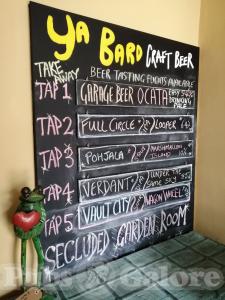 Ya Bard CRAFT BEER
TAKE AWAY
BEER TASTING FLIGHTS AVAILABLE
TAP 1 GARAGE BEER OCATA EASY DRINKING PALE
TAP 2 FULL CIRCLE LOOPER
TAP 3 POHJALA MARSHMALLOW ISLAND
TAP4 VERDANT UNDER THE SAME SKY
TAP 5 VAULT CITY WAGON WHEEL
SECLUDED GARDEN ROOM
Pubs Galore